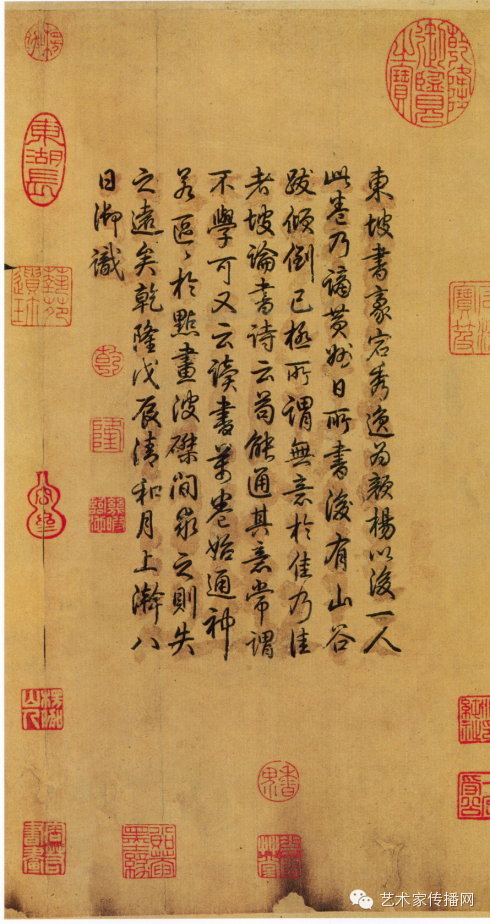 乾隆御覽之寶
東坡書豪宕秀逸為顏楊以後一人
此卷乃謫黃州日所書後有山谷
跋傾倒已極所謂無意於佳乃佳
者坡論書詩云苟能通其意常謂
不學可又云讀書萬卷始通神
若區〻於點畫波磔間求之則失
之遠矣乾隆戊辰清和月上澣八
日御識
乾
隆
東湖長
楞伽山人
艺术家传播网